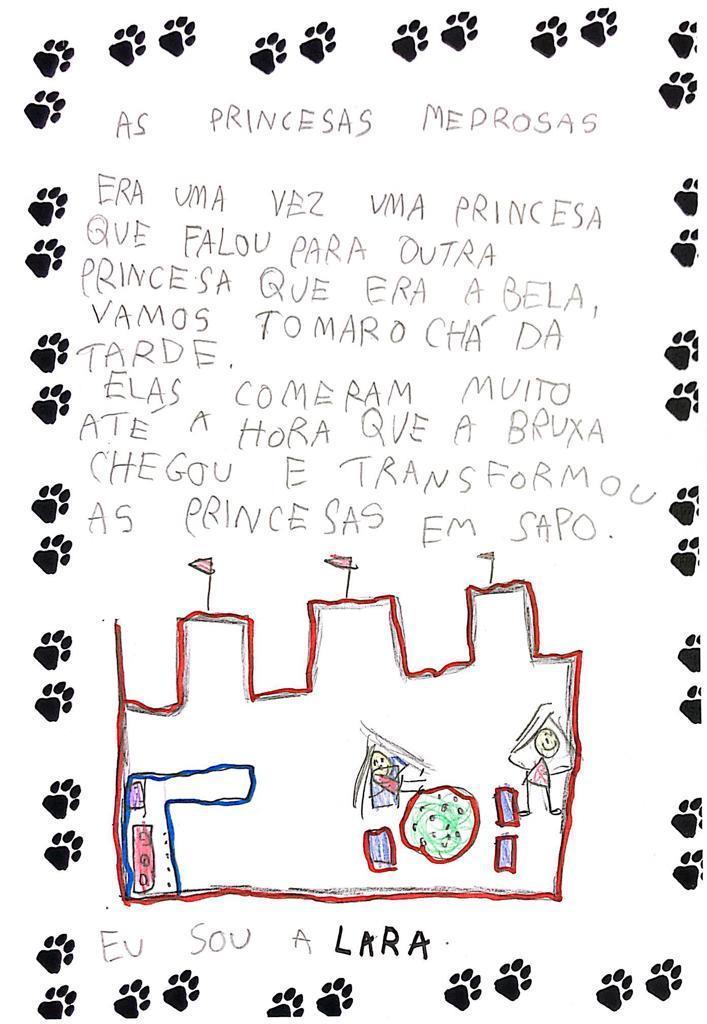 AS PRINCESAS MEDROSAS
ERA UMA VEZ UMA PRINCESA
QUE FALOU PARA OUTRA
PRINCESA QUE ERA A BELA,
VAMOS TOMARO CHÁ DA
TARDE.
ELAS COMERAM MUITO
ATÉ A HORA QUE A BRUXA
CHEGOU E TRANSFORMOU
AS PRINCESAS EM SAPO.
EU SOU A LARA.